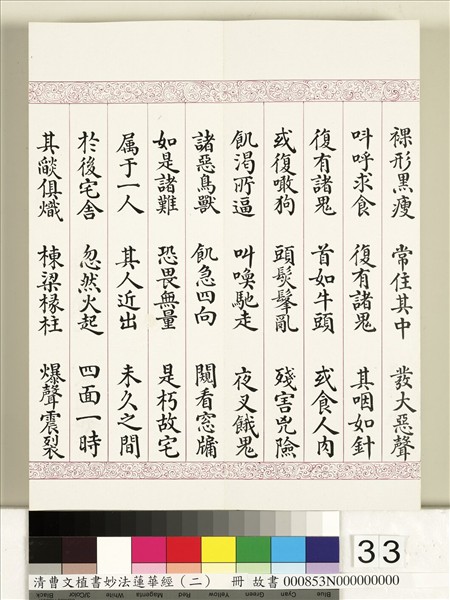 裸形黒瘦 常住其中 發大惡聲
叫呼求食 復有諸鬼 其咽如針
復有諸鬼 首如牛頭 或食人肉
或復噉狗 頭髮髼亂 殘害兇險
飢渴所逼 叫喚馳走 夜叉餓鬼
諸惡鳥獸 飢急四向 闚看窓牖
如是諸難 恐畏無量 是朽故宅
属于一人 其人近出 未久之間
於後宅舍 忽然火起 四面一時
其𦦨俱熾 棟梁椽柱 爆聲震裂
33
清曹文植書妙法蓮華經（二） 冊 故書 000853N000000000
Blue Cyan Green Yellow Red Magenta White 3/Color Black